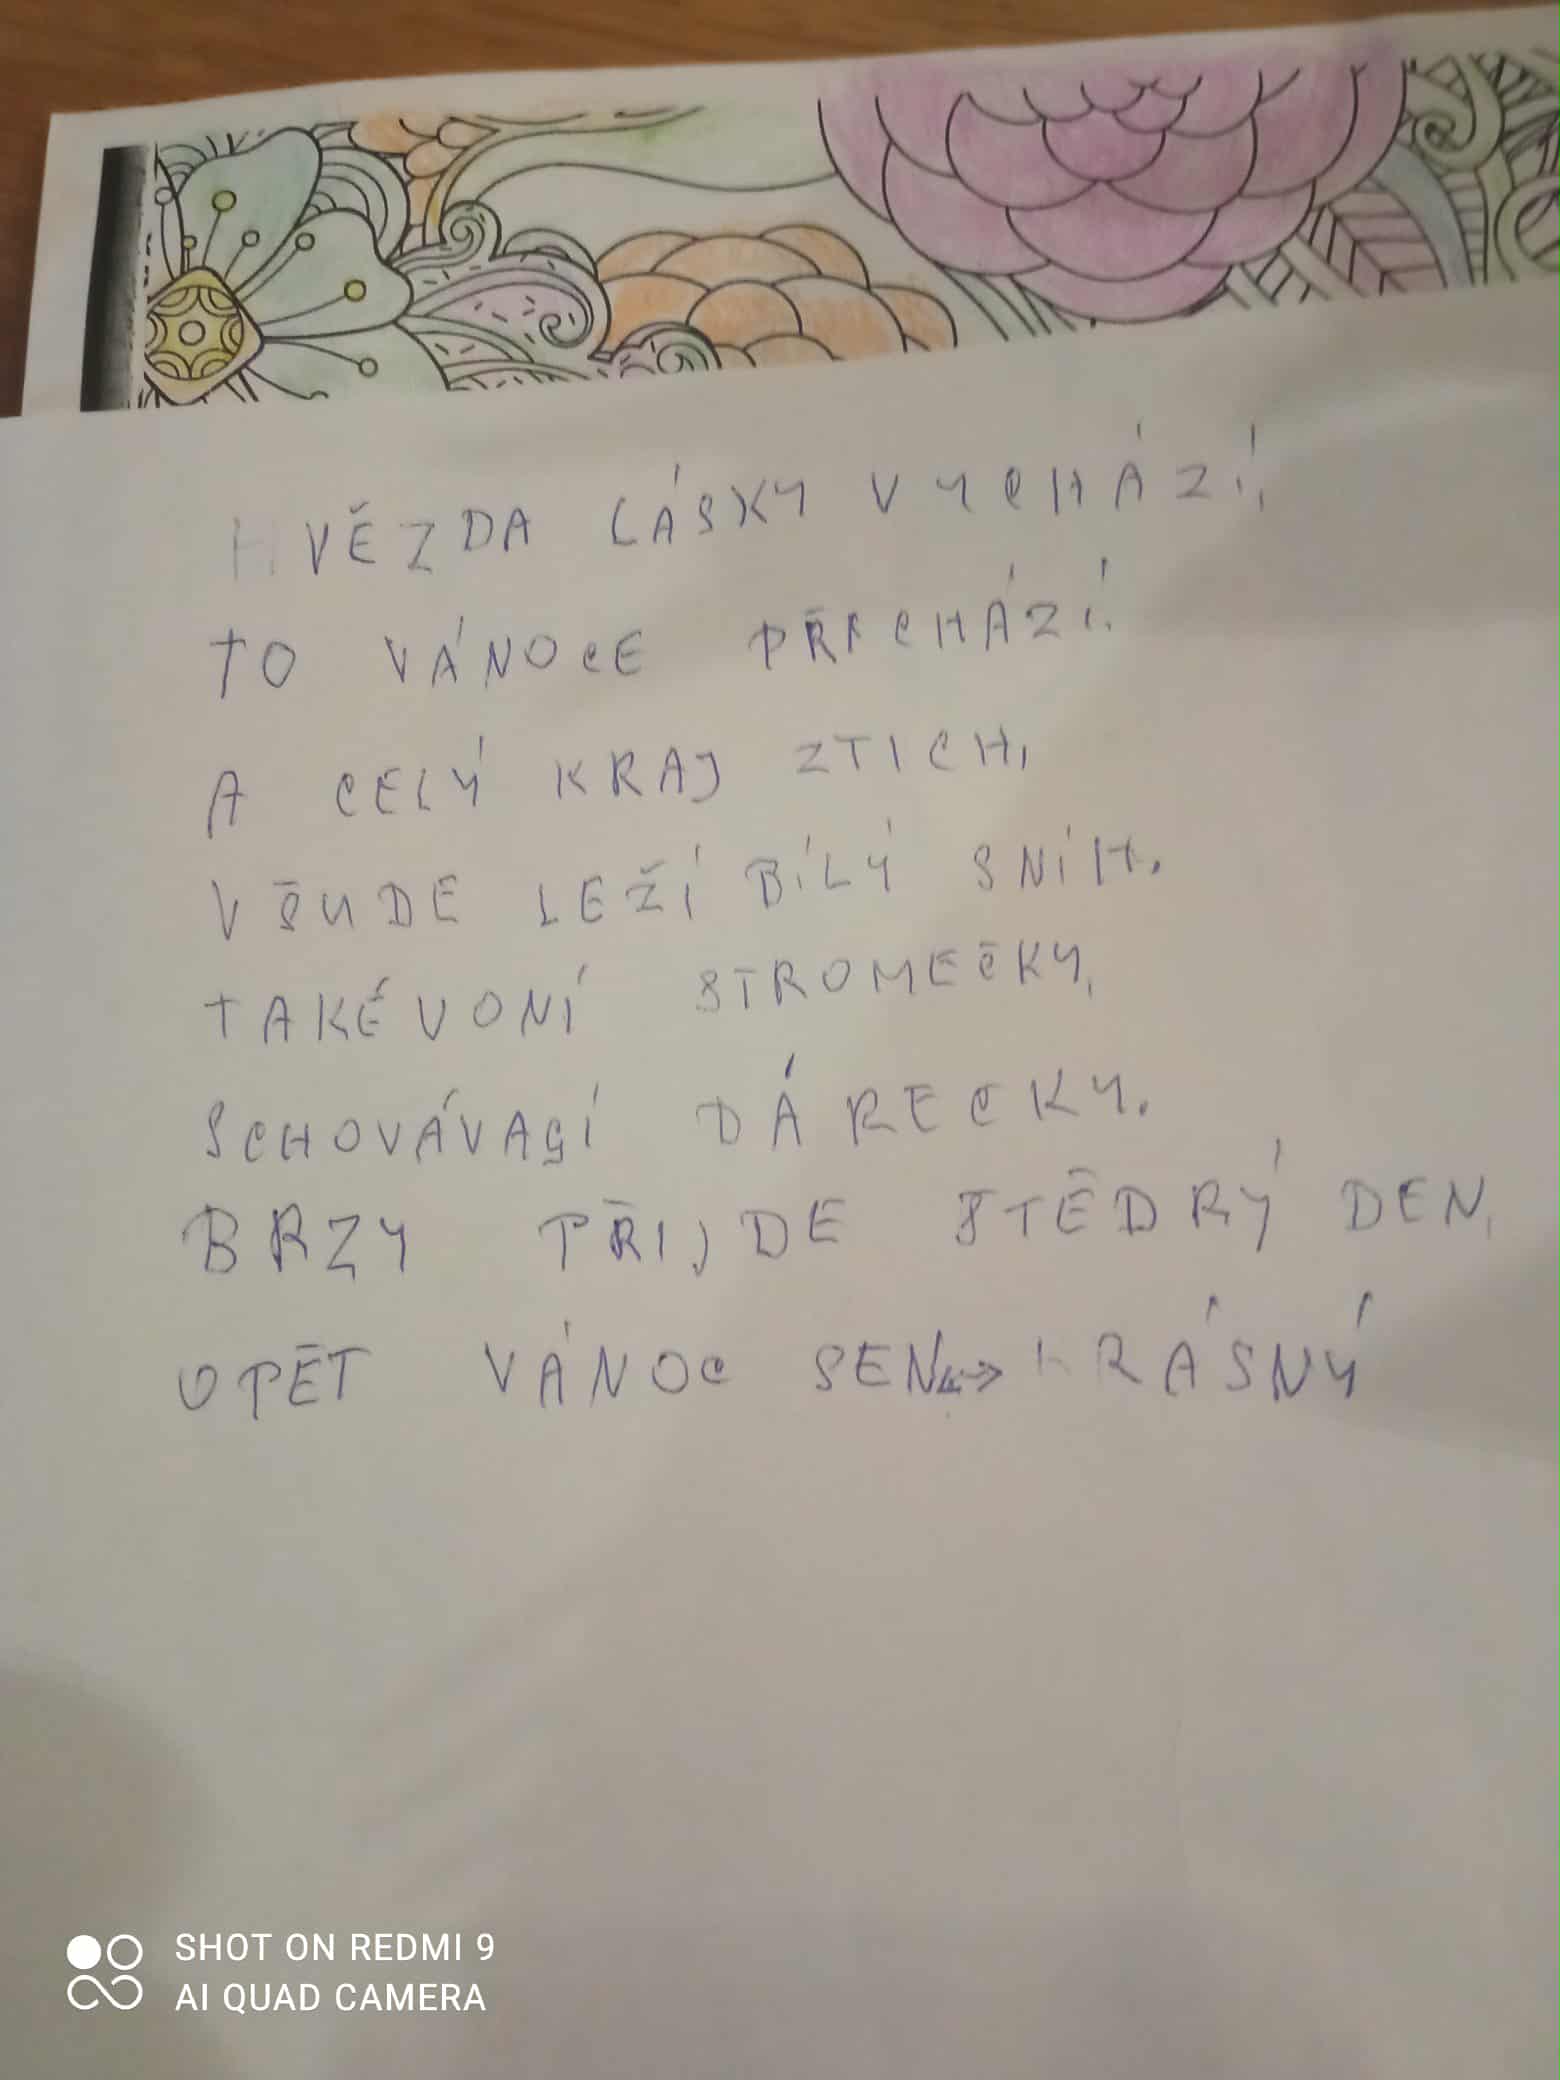 HVĚZDA LÁSKY VYCHÁZÍ,
TO VÁNOCE PŘICHÁZÍ.
A CELÝ KRAJ ZTICH,
VŠUDE LEŽÍ BÍLÝ SNÍH.
TAKÉ VONÍ STROMEČKY,
SCHOVÁVAGÍ DÁRECKY.
BRZY PŘIJDE STĚDRÝ DEN,
OPĚT VÁNOC SEN <-> KRÁSNÝ
SHOT ON REDMI 9
AI QUAD CAMERA